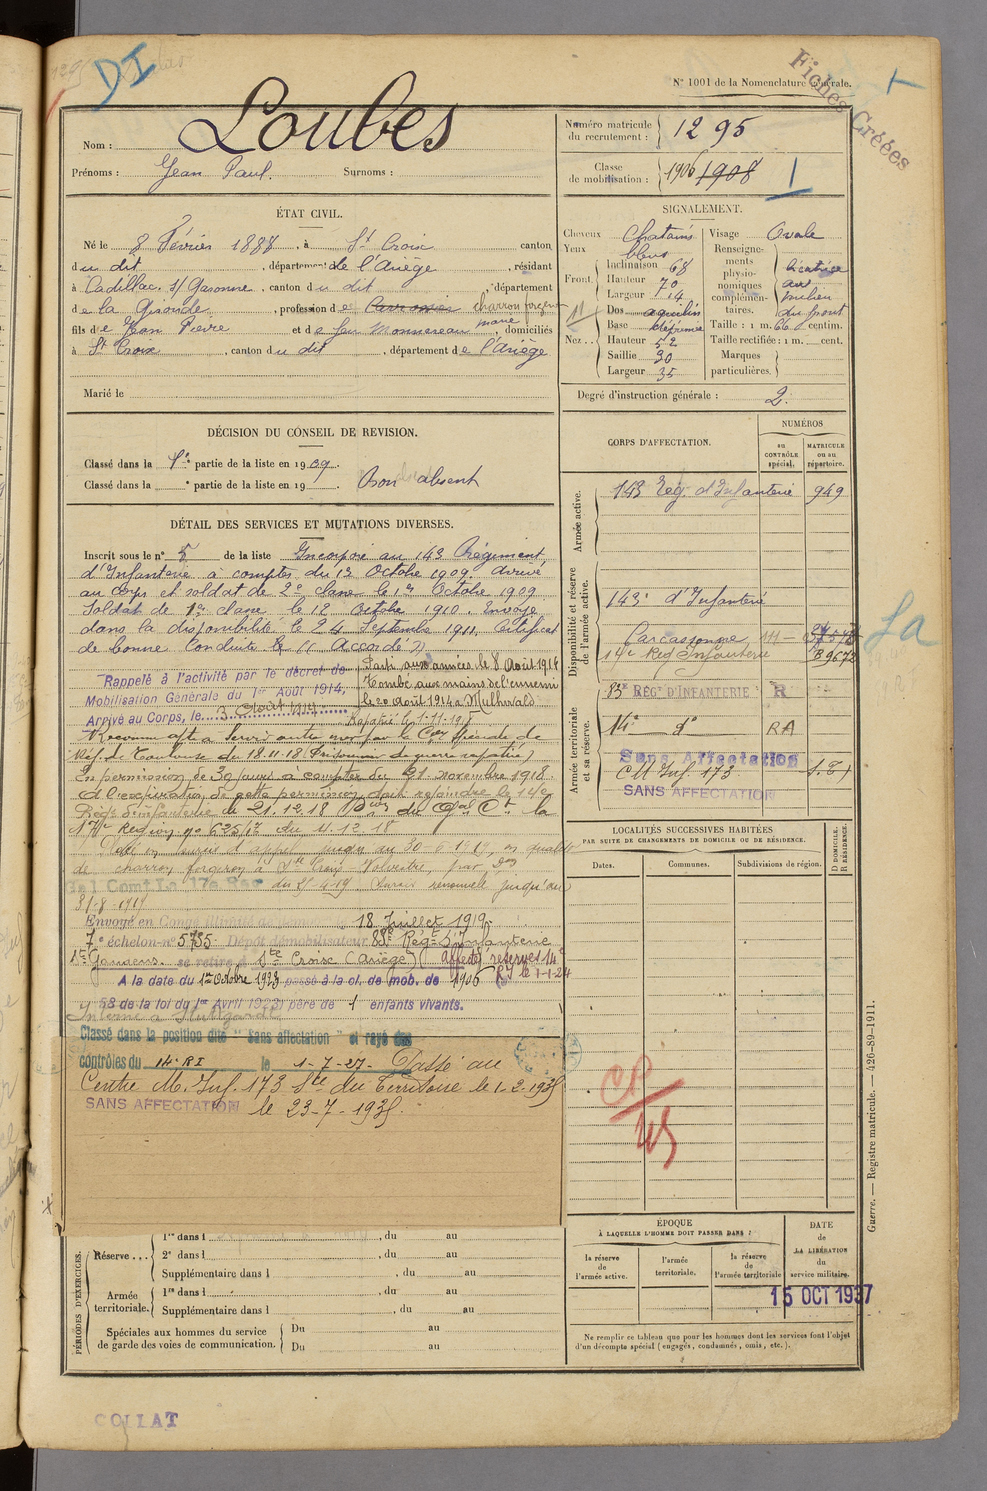 DI
N° 1001 de la Nomenclature Générale.
Fiches Créées
Nom : Loubes
Prénoms : Jean Paul. Surnoms :
Numéro matricule du recrutement : 1295
Classe de mobilisation : 1906 1908
I
ÉTAT CIVIL.
Né le 8 Février 1888, à St Croix canton
du dit, département de l'Ariège, résidant
à Cadillac s/ Garonne, canton du dit, département
de la Gironde, profession de charron forgeron
fils de Jean Pierre et de feu Monnereau marie, domiciliés
à St Croix, canton du dit, département de l'Ariège
Marié le
SIGNALEMENT.
Cheveux Chatains
Yeux bleus
Front Inclinaison 68
Hauteur 70
Largeur 14
Nez Dos aquilin
Base
Hauteur 52
Saillie 30
Largeur 35
Visage Ovale
Renseignements physionomiques complémentaires. Cicatrice au milieu du front
Taille : 1 m. 66 centim.
Taille rectifiée : 1 m. cent.
Marques particulières.
Degré d'instruction générale : 2.
DÉCISION DU CONSEIL DE REVISION.
Classé dans la 1re partie de la liste en 1909.
Classé dans la ° partie de la liste en 19 Bon absent
DÉTAIL DES SERVICES ET MUTATIONS DIVERSES.
Inscrit sous le n° 5 de la liste Incorporé au 143 Régiment
d'Infanterie à compter du 13 Octobre 1909. Arrivé
au Corps et soldat de 2e classe le 13 Octobre 1909
Soldat de 1re classe le 12 Octobre 1910. Envoyé
dans la disponibilité le 24 Septembre 1911. Certificat
de bonne Conduite "Accordé"
Rappelé à l'activité par le décret de
Mobilisation Générale du 1er Août 1914,
Arrivé au Corps, le 3 Août 1914
Parti aux armées le 8 Août 1914
Tombé aux mains de l'ennemi
le 20 Août 1914 à Mulhwald
Rapatrié le 1-11-1918
Reconnu apte à servir par la Con Spéciale de
Réf. de Toulouse du 18.11.18 (Prisonnier de guerre rapatrié)
En permission de 30 jours à compter du 21 novembre 1918.
A l'expiration de cette permission doit rejoindre le 14e
Régt d'Infanterie le 21.12.18 Don du Gal Ct la
17e Région n° 625/12 du 11.12.18
jusqu'au 30-6-1919, en qualité
de charron forgeron à Ste Croix Volvestre, par Don
Gal Comt La 17e Reg du 25-4-19. Sursis renouvelé jusqu'au
31-8-1919
Envoyé en Congé illimité de démob. le 18 Juillet 1919.
7e échelon n° 5735 Dépôt démobilisateur 88e Régt d'Infanterie
St Gaudens. se retire à Ste Croix (Ariège) Affecté réserve 14e
RI le 1-1-24
A la date du 1er Octobre 1923 passé à la cl. de mob. de 1906
58 de la loi du 1er Avril 1923) père de 1 enfants vivants.
Interné à Stuttgard
Classé dans la position dite "Sans affectation" et rayé des
contrôles du 14e RI le 1-7-27. Passé au
Centre M. Inf. 173 Ste du Territoire le 1-2-1935
SANS AFFECTATION le 23-7-1935.
CORPS D'AFFECTATION.
NUMÉROS
au CONTRÔLE spécial.
MATRICULE ou au répertoire.
Armée active.
143 Rég. d'Infanterie 949
Disponibilité et réserve de l'armée active.
143e d'Infanterie
Carcassonne
14e Rég Infanterie B9672
La
Armée territoriale et sa réserve.
83e RÉG. D'INFANTERIE R
14e do RA
Sans Affectation
CM Inf. 173 S.T
SANS AFFECTATION
LOCALITÉS SUCCESSIVES HABITÉES
PAR SUITE DE CHANGEMENTS DE DOMICILE OU DE RÉSIDENCE.
Dates. Communes. Subdivisions de région.
D. DOMICILE. R. RÉSIDENCE.
PÉRIODES D'EXERCICES.
Réserve
1re dans l , du au
2e dans l , du au
Supplémentaire dans l , du au
Armée territoriale.
1re dans l , du au
Supplémentaire dans l , du au
Spéciales aux hommes du service de garde des voies de communication.
Du au
Du au
ÉPOQUE
À LAQUELLE L'HOMME DOIT PASSER DANS :
la réserve de l'armée active.
l'armée territoriale.
la réserve de l'armée territoriale
DATE de LA LIBÉRATION du service militaire.
15 OCT 1937
Ne remplir ce tableau que pour les hommes dont les services font l'objet
d'un décompte spécial (engagés, condamnés, omis, etc.).
Guerre. — Registre matricule. — 426-89-1911.
COLLAT